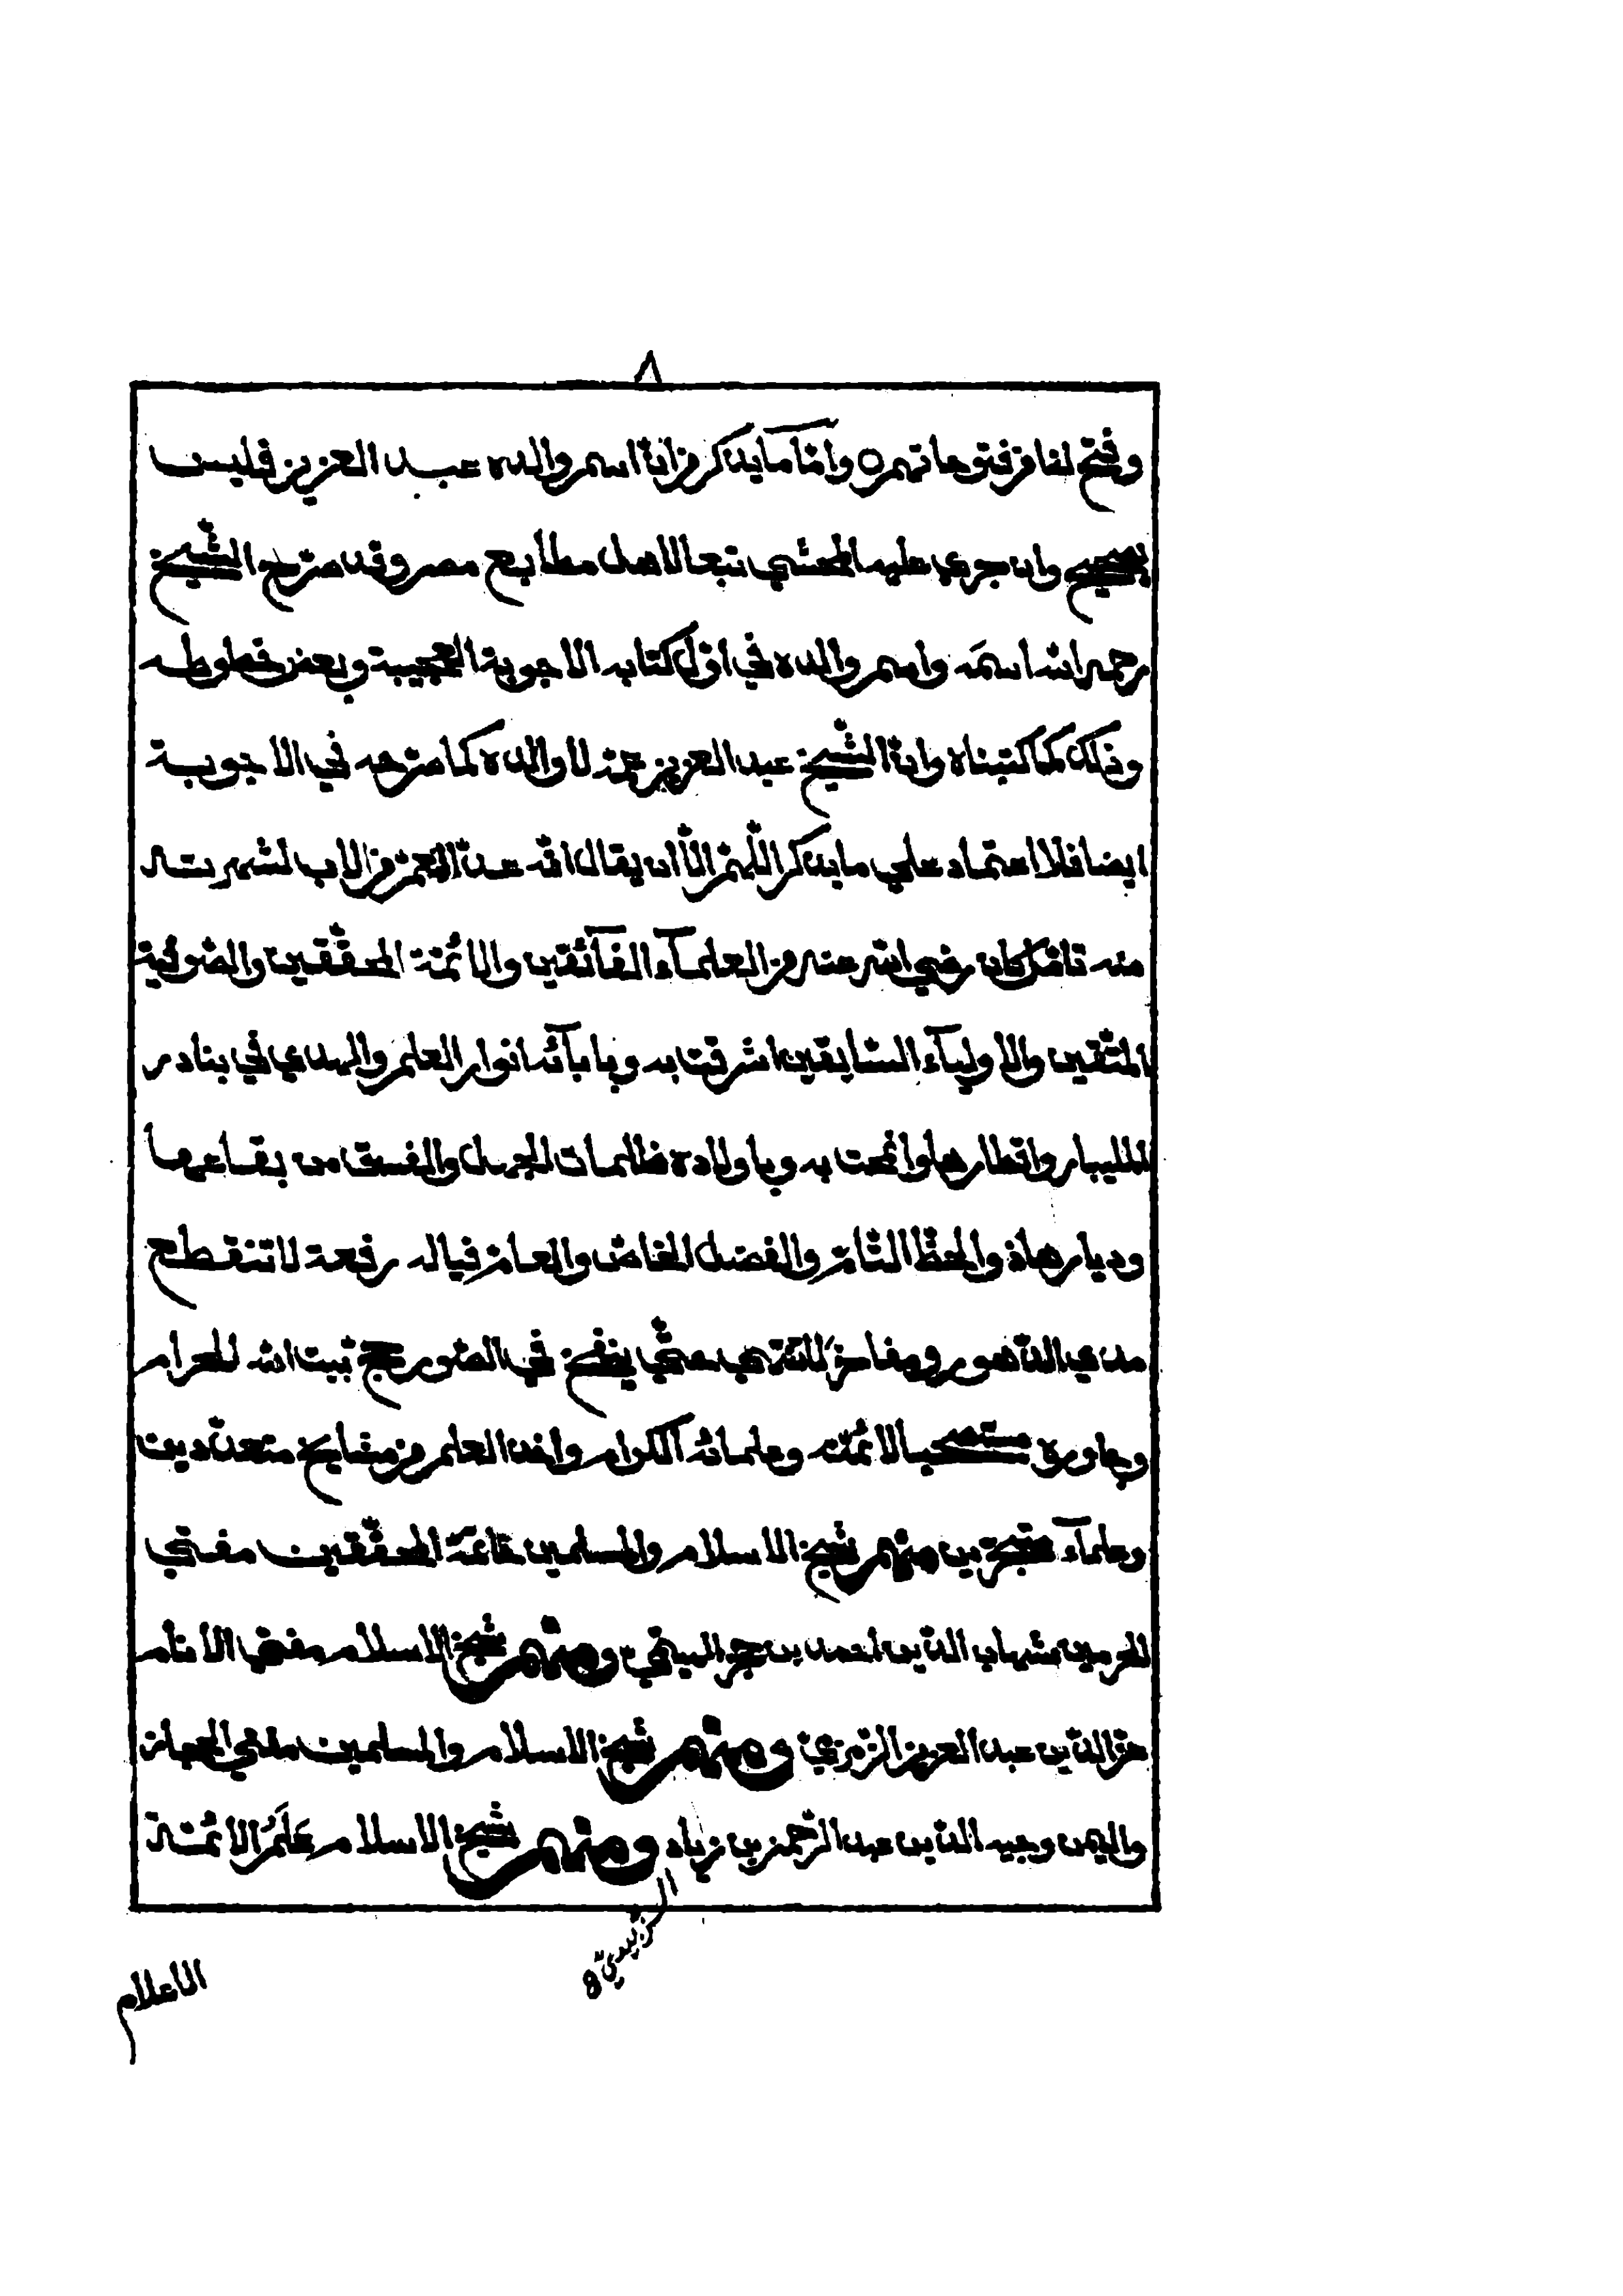 ٨
وفتح لنا من فتوحاتهم ٥ وامّا ما يذكر من انّ اسم والده عبد العزيز فليس
بصحيح وان جرى عليه المحشّي تبعا لاهل مطابع مصر وقد صرّح الشّيخ
رحمه الله اسمَه واسم والده في اوّل كتابه الاجوبة العجيبة وبعض خطوطه
وذلك كما كتبناه وانّ الشّيخ عبد العزيز عمّه لا والده كما صرّحه في الاجوبة
ايضا فلا اعتماد على ما يذكر اللّهمّ الّا ان يقال انّه عدّ العمّ من الاب لشهرته
منه تامّل كان رضي الله عنه من العلمآء الفآئقين والائمّة المحقّقين والصّوفية
المتّقين والاوليآء السّابقين اشرقت به وبابآئه انوار العلم والهدى في بنادر
المليبار واقطارها وانمحت به وباولاده ظلمات الجهل والفسق من بقاعها
وديارها ذو الحظّ التّامّ والفضل الخاصّ والعامّ فياله رفعة لا تنقطع
مدى الدّهور ومفاخر تترى حتّى ينفخ في الصّور حجّ بيت الله الحرام
وجاوره مستصحبا لائمّته وعلمائه الكرام واخذ العلم من مشايخ متعدّدين
وعلمآء متبحّرين منهم شيخ الاسلام والمسلمين خاتمة المحقّقين مفتي
الحرمين شهاب الدّين احمد بن حجر الهيتمي ومنهم شيخ الاسلام مفتي الانام
عزّ الدّين عبد العزيز الزّمزمي ومنهم شيخ الاسلام والمسلمين مفتي الحجاز
واليمن وجيه الدّين عبد الرّحمن بن زياد ومنهم شيخ الاسلام عَلَمُ الائمّة
الزّبيديّ
الاعلام